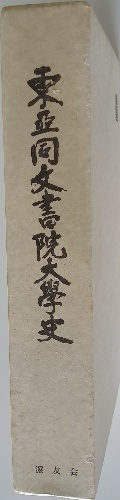 東亜同文書院大學史
滬友会